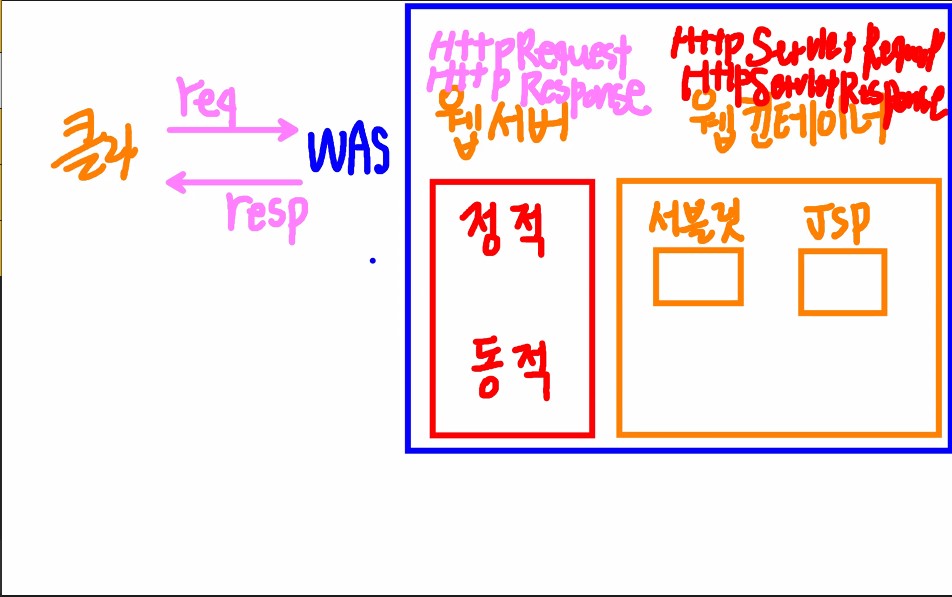 클라
req
resp
WAS
HttpRequest
Http Response
웹 서버
정적
동적
Http Servlet Request
Http Servlet Response
웹 컨테이너
서블릿
JSP